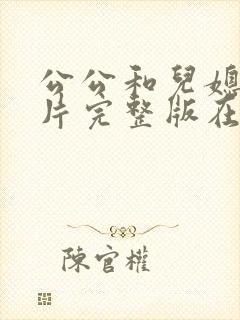 公公和兒媳
片完整版在
陳官權